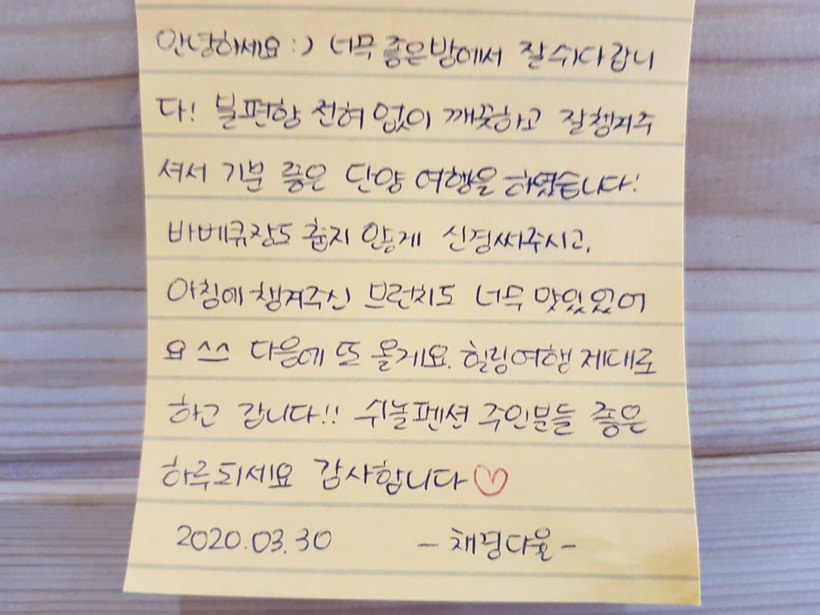 안녕하세요 :) 너무 좋은방에서 잘쉬다갑니
다! 불편함 전혀 없이 깨끗하고 잘챙겨주
셔서 기분 좋은 단양 여행을 하였습니다!
바베큐장도 춥지 않게 신경써주시고,
아침에 챙겨주신 브런치도 너무 맛있었어
요 ^^ 다음에 또 올게요. 힐링여행 제대로
하고 갑니다!! 쉬놀펜션 주인분들 좋은
하루되세요 감사합니다♡
2020.03.30